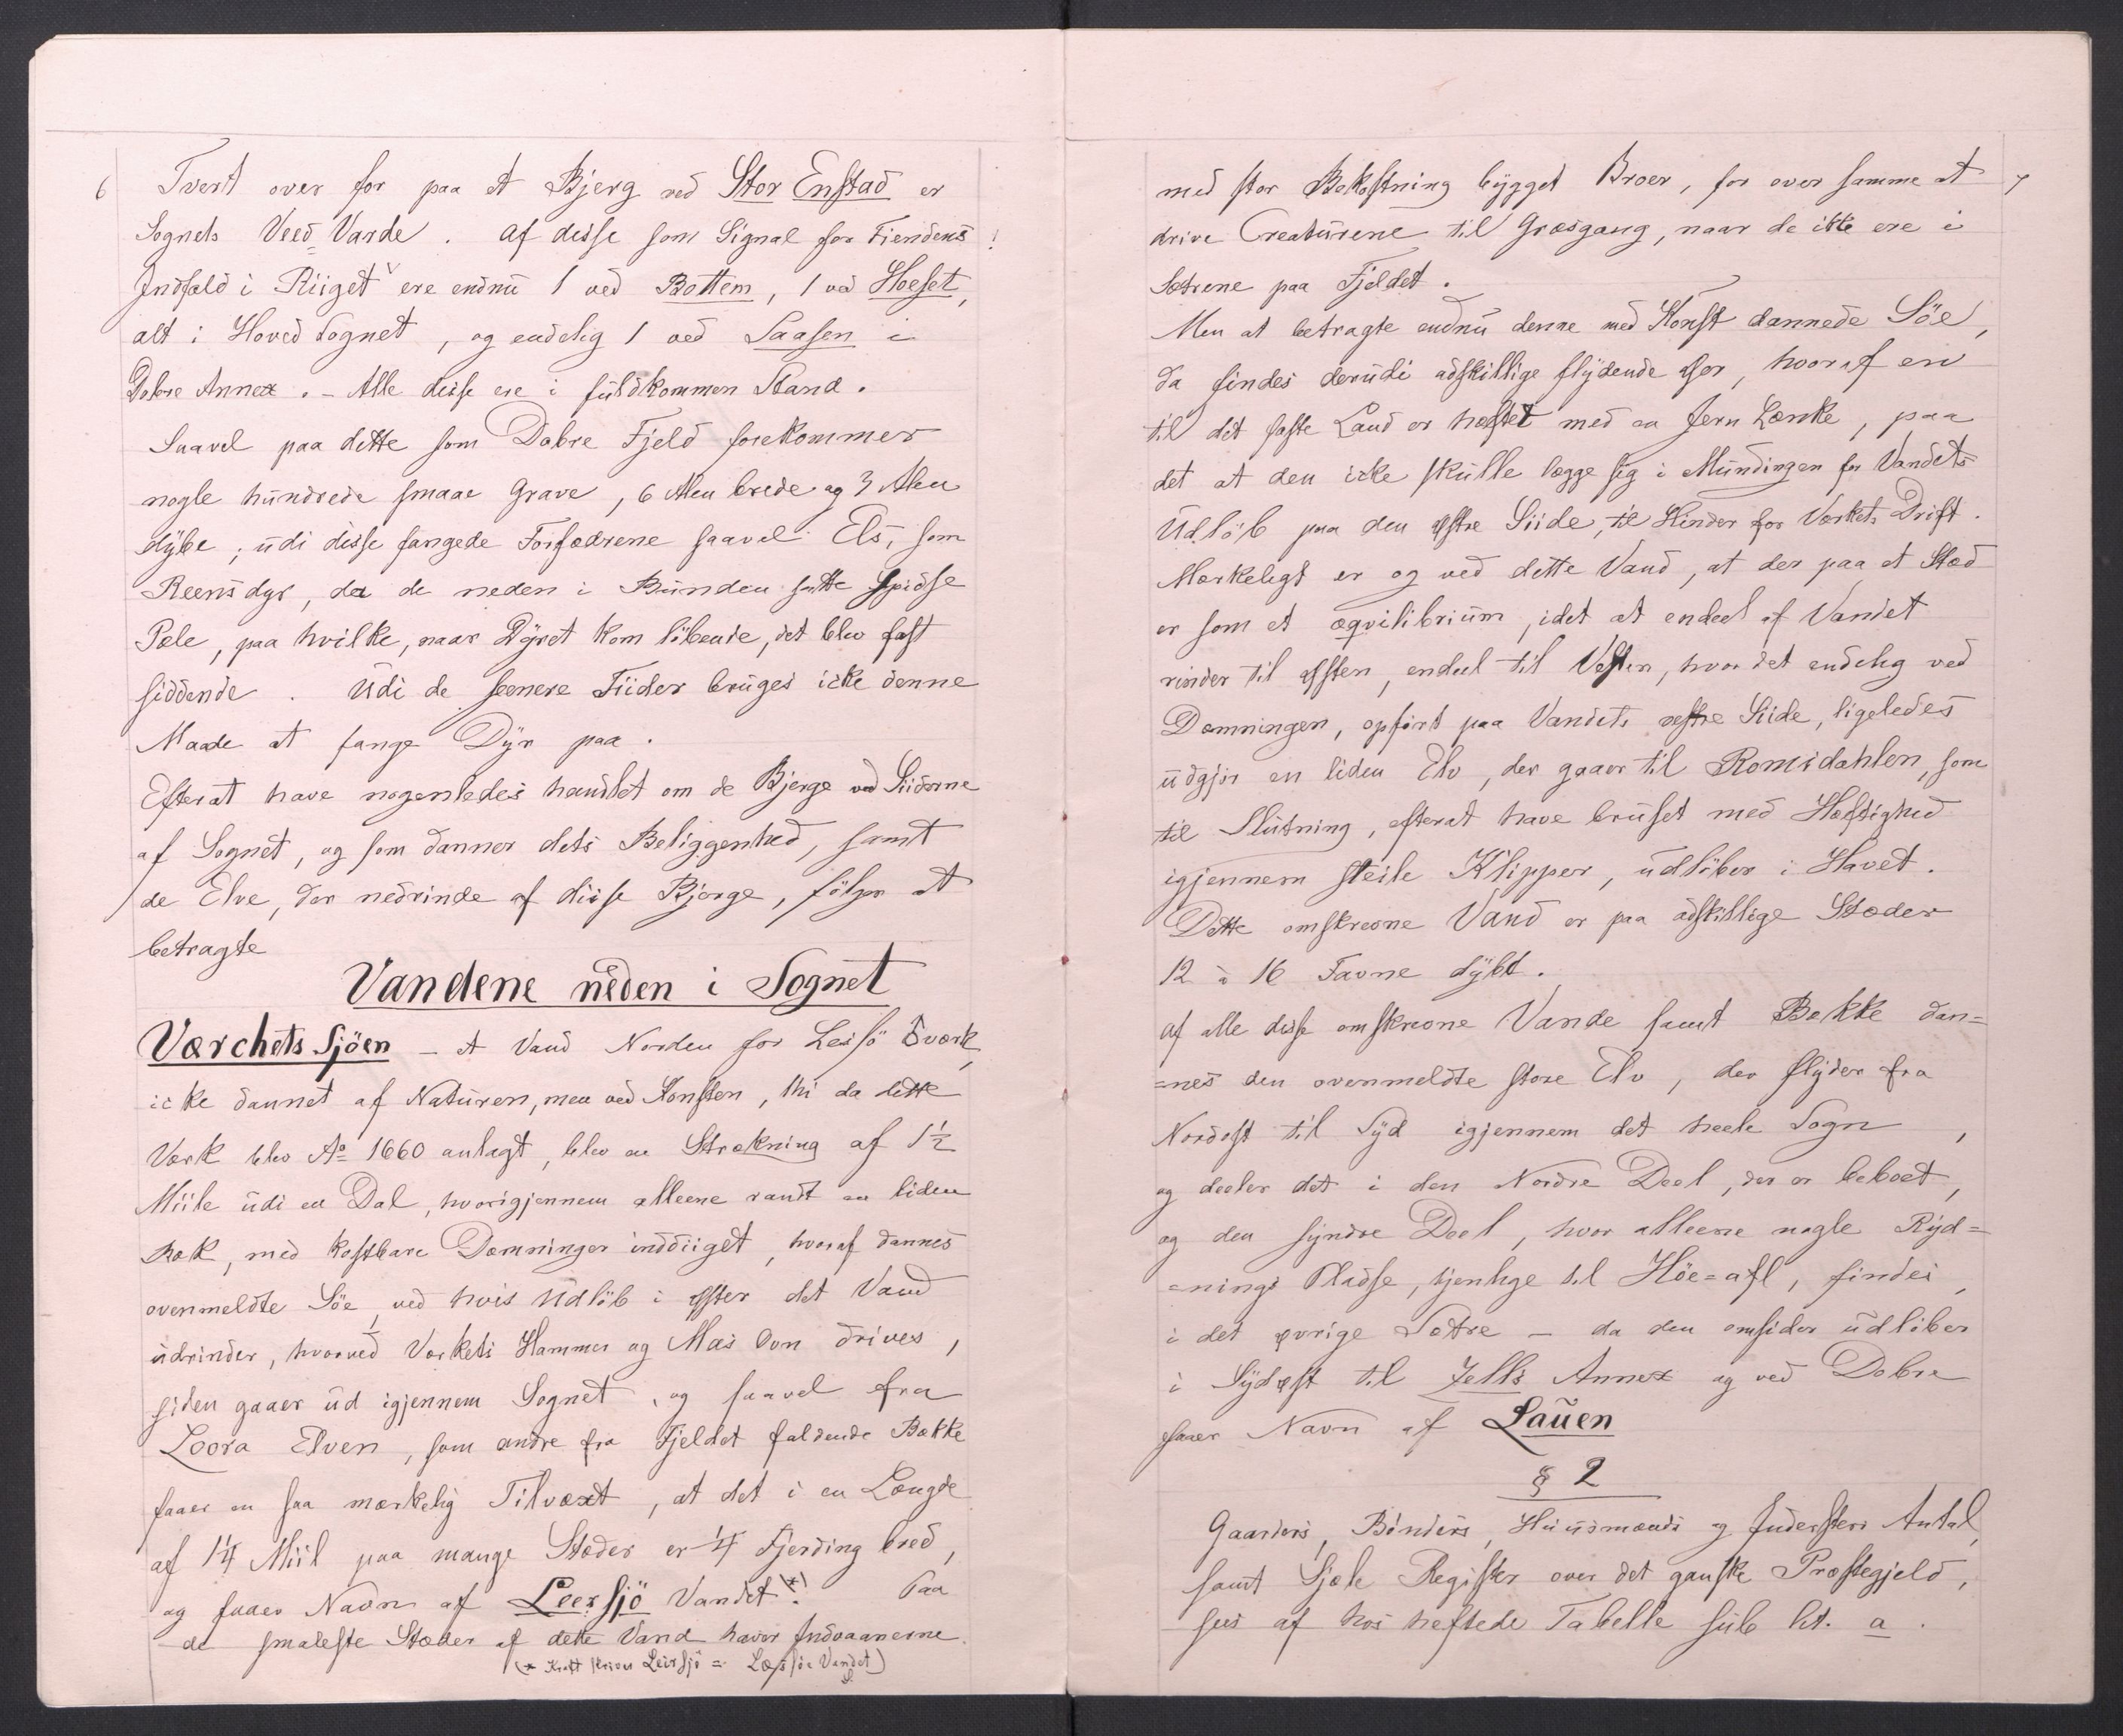 6 Tvert over for paa et Bjerg ved Stor Enstad er
Sognets Veed-Varde. Af disse som Signal for Fiendens
Indfald i Riiget ere endnu 1 ved Bottem, 1 ved Hoeset,
alt i Hoved Sognet, og endelig 1 ved Saasen i
Dobre Annex. - Alle disse ere i fuldkommen Stand.
Saavel paa dette som Dobre Fjeld forekommer
nogle hundrede smaae Grave, 6 Alen brede og 3 Alen
dybe; udi disse fangede Forfædrene saavel Els, som
Reensdyr, da de neden i Bunden satte Spidse
Pæle, paa hvilke, naar Dyret kom löbende, det blev fast
siddende. Udi de seenere Tiider bruges icke denne
Maade at fange Dyr paa.
Efterat have nogenledes handlet om de Bjerge ved Siiderne
af Sognet, og som danner dets Beliggenhed, samt
de Elve, der nedrinde af disse Bjerge, fölger at
betragte
Vandene neden i Sognet
Værchets Sjöen - et Vand Norden for Lessö Værk,
icke dannet af Naturen, men ved Konsten, thi da dette
Værk blev Aº 1660 anlagt, blev en Strækning af 1½
Miile udi en Dal, hvorigjennem alleene randt en liden
Bæk, med kostbare Dæmninger inddiiget, hvoraf dannes
ovenmeldte Söe, ved hvis Udlöb i Öster det Vand
udrinder, hvorved Værkets Hammer og Mas Ovn drives,
siden gaaer ud igjennem Sognet, og saavel fra
Loora Elven, som andre fra Fjeldet faldende Bække
faaer en saa mærkelig Tilvæxt, at det i en Længde
af 1¼ Miil paa mange Stæder er ¼ Fjerding bred,
og faaer Navn af Leersjö Vandet*). Paa
de smaleste Stæder af dette Vand haver Indvaanerne
(* Kraft skriver Leirsjö = Læssöe Vandet)
med stor Bekostning bygget Broer, for over samme at 7
drive Creaturene til Græsgang, naar de ikke ere i
Sætrene paa Fjeldet.
Men at betragte endnu denne med Konst dannede Söe,
da findes derudi adskillige flydende Öer, hvoraf en
til det faste Land er hæftet med en Jern Lænke, paa
det at den icke skulle lægge sig i Mundingen for Vandets
Udlöb paa den østre Siide, til Hinder for Værkets Drift.
Mærkeligt er og ved dette Vand, at der paa et Stæd
er som et æqvilibrium, idet at endeel af Vandet
rinder til Østen, endeel til Vesten, hvor det endelig ved
Dæmningen, opfört paa Vandets vestre Siide, ligeledes
udgjör en liden Elv, der gaaer til Romsdahlen, som
til Slutning, efterat have bruset med Hæftighed
igjennem steile Klipper, udlöber i Havet.
Dette omskrevne Vand er paa adskillige Stæder
12 à 16 Favne dybt.
Af alle disse omskrevne Vande samt Bække dan=
=nes den ovenmeldte store Elv, der flyder fra
Nordost til Syd igjennem det heele Sogn,
og deeler det i den Nordre Deel, der er beboet,
og den syndre Deel, hvor alleene nogle Ryd=
=nings Pladse, tjenlige til Höe=afl, findes,
i det øvrige Sætre - da den omsider udlöber
i Sydøst til Jells Annex og ved Dobre
faaer Navn af Lauen
§ 2
Gaarders, Bönders, Huusmænds og Indersters Antal,
samt Sjæle Register over det ganske Præstegjeld,
sees af hos heftede Tabelle sub lit. a.